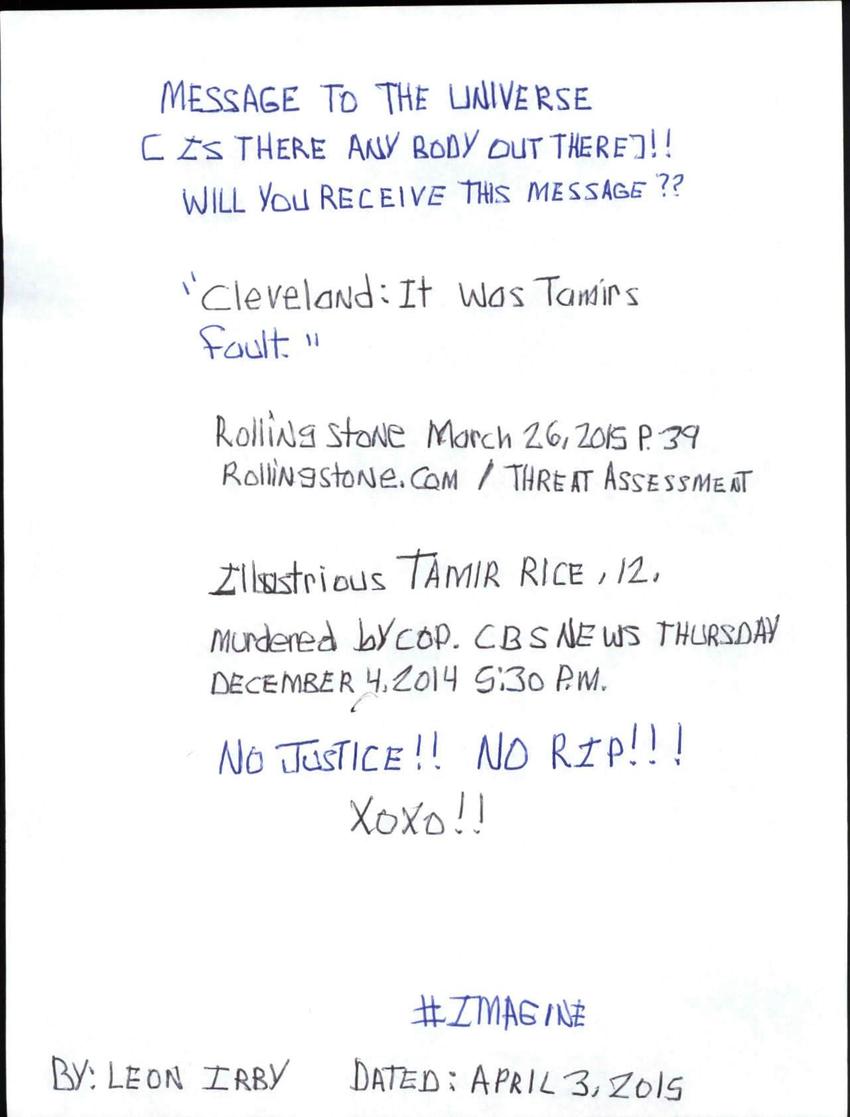 MESSAGE TO THE UNIVERSE
[ IS THERE ANY BODY OUT THERE]!!
WILL YOU RECEIVE THIS MESSAGE ??
"Cleveland: It was Tamirs
fault."
Rolling Stone March 26, 2015 P. 39
Rollingstone.com / THREAT ASSESSMENT
Illustrious TAMIR RICE , 12,
murdered by COP. CBS NEWS THURSDAY
DECEMBER 4, 2014 5:30 P.M.
NO JUSTICE!! NO RIP!!!
XOXO!!
#IMAGINE
BY: LEON IRBY DATED: APRIL 3, 2015